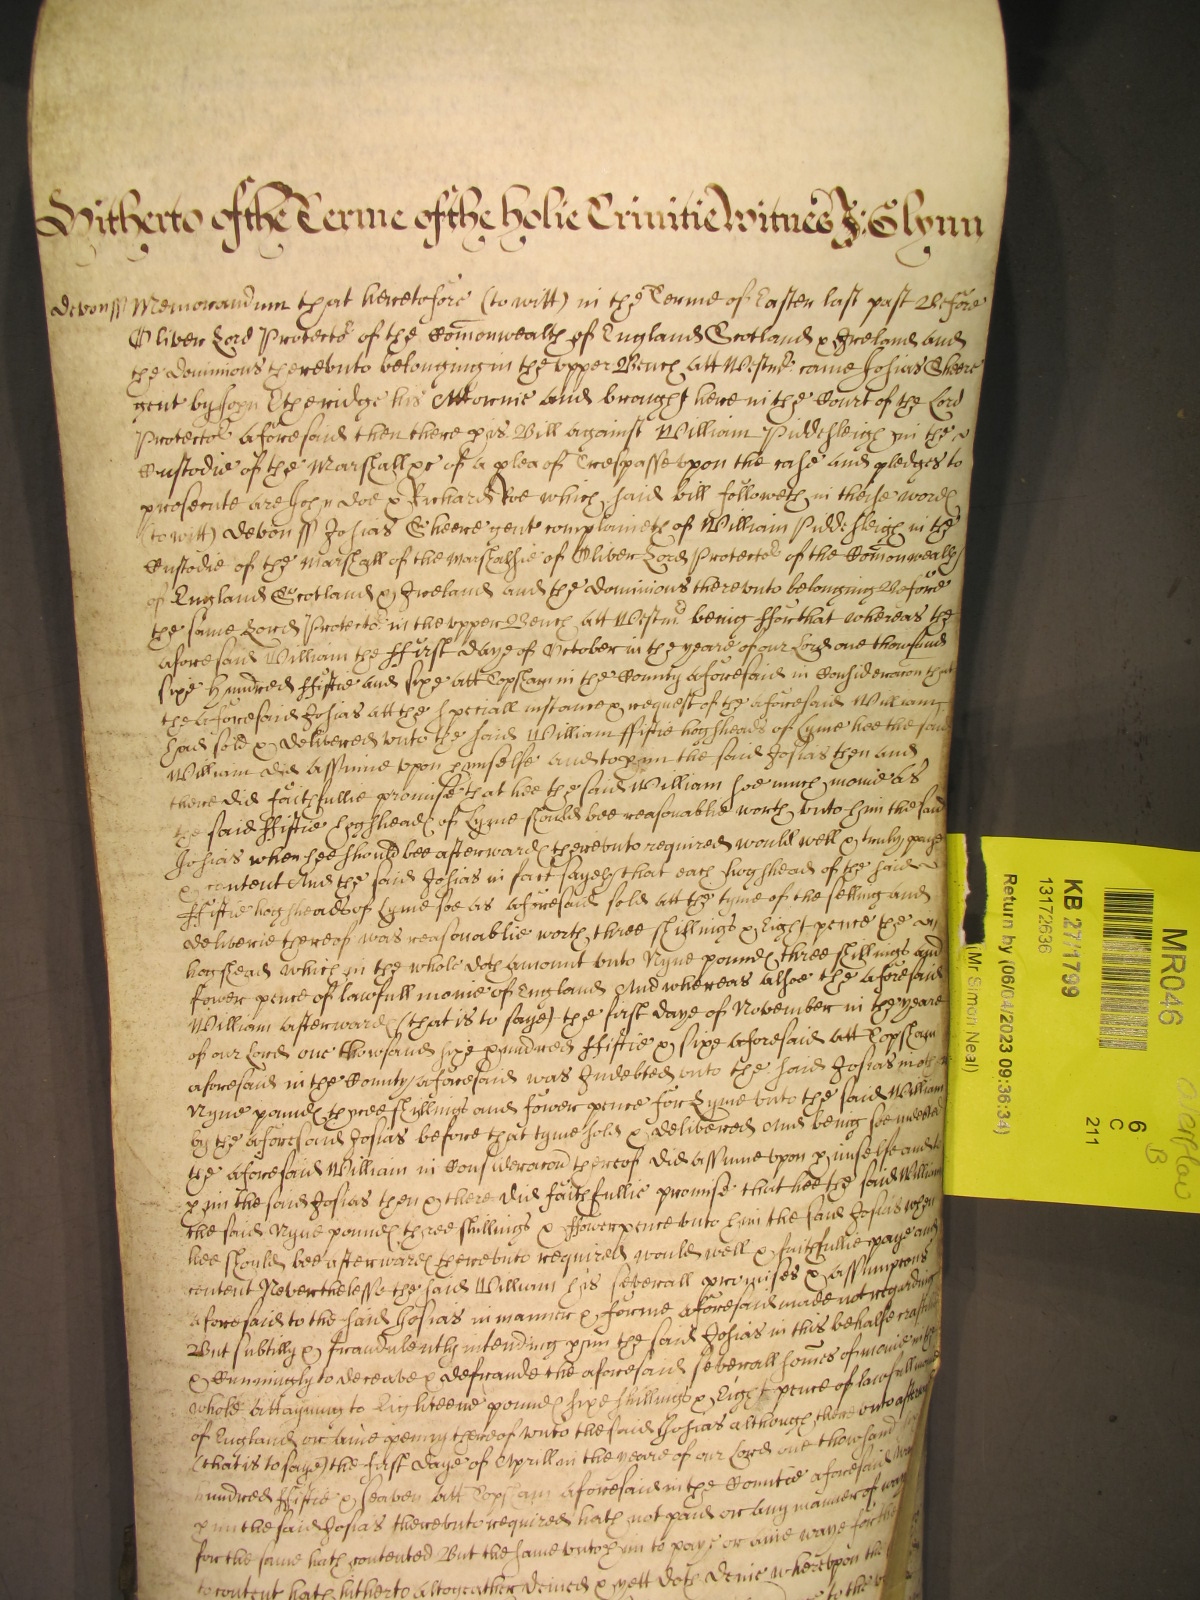 Hitherto of the Terme of the holie Trinitie Witnes J: Glynn
Devon ss Memorandum that heretofore (to witt) in the Terme of Easter last past Before
Oliver Lord Protector of the Comonwealth of England Scotland & Ireland and
the dominions therevnto belonging in the vpper Bench att Westmr came Josias Sheere
gent by John Etheridge his Attornie and brought here in the Court of the Lord
Protector aforesaid then there his Bill against William Piddesleigh in the
Custodie of the Marshall &c of a plea of Trespasse vpon the case and pledges to
prosecute are John Doe & Richard Roe which said bill followeth in theise words
(to witt) Devon ss Josias Sheere gent complaineth of William Piddesleigh in the
Custodie of the Marshall of the Marshalsie of Oliver Lord Protector of the Comonwealth
of England Scotland & Ireland and the dominions therevnto belonging Before
the same Lord Protector in the vpper Bench att Westmr being ffor that whereas the
aforesaid William the ffirst daye of October in the yeare of our Lord one thowsand
sixe hundred ffiftie and sixe att Topsham in the County aforesaid in Consideracon that
the aforesaid Josias att the speciall instance & request of the aforesaid William
had sold & delivered vnto the said William ffiftie hogsheads of Lyme hee the said
William did assume vpon himselfe and to him the said Josias then and
there did faithfullie promise that hee the said William soe much monie as
the said ffiftie hogsheads of Lyme should bee reasonablie worth vnto him the said
Josias when hee should bee afterwards therevnto required would well & truly paye
& content And the said Josias in fact sayeth that each hogshead of the said
ffiftie hogsheads of Lyme soe as aforesaid sold att the tyme of the selling and
deliverie thereof was reasonablie worth three shillings & Eight pence the
hogshead which in the whole doth amount vnto Nyne pounds three shillings and
fower pence of lawfull monie of England And whereas alsoe the aforesaid
William afterwards (that is to saye) the first daye of November in the yeare
of our Lord one thowsand sixe hundred ffiftie & sixe aforesaid att Topsham
aforesaid in the County aforesaid was Indebted vnto the said Josias in other
Nyne pounds three shillings and fower pence for Lyme vnto the said William
by the aforesaid Josias before that tyme sold & delivered And being soe indebted
the aforesaid William in Consideracon thereof did assume vpon himselfe and to
him the said Josias then & there did faithfullie promise that hee the said William
the said Nyne pounds three shillings & ffower pence vnto him the said Josias when
hee should bee afterwards therevnto required would well & faithfullie paye and
content Neverthelesse the said William his severall promises & assumptions
aforesaid to the said Josias in manner & forme aforesaid made not regarding
But subtilly & fraudulently intending him the said Josias in this behalfe craftily
& Cunningly to deceave & defraude the aforesaid severall somes of monie in the
whole attayning to Eighteene pounds sixe shillings & Eight pence of lawfull monie
of England or anie penny thereof vnto the said Josias although therevnto afterwards
(that is to saye) the first daye of Aprill in the yeare of our Lord one thowsand
hundred ffiftie & seaven att Topsham aforesaid in the Countie aforesaid
him the said Josias therevnto required hath not paid or any manner of way
for the same hath contented But the same vnto him to paye or anie waye for the
to content hath hitherto altogeather denied & yett doth denie wherevpon the
to the
MR046
6
C
211
KB 27/1799
13172636
Return by (06/04/2023 09:36:34)
(Mr Simon Neal)
B